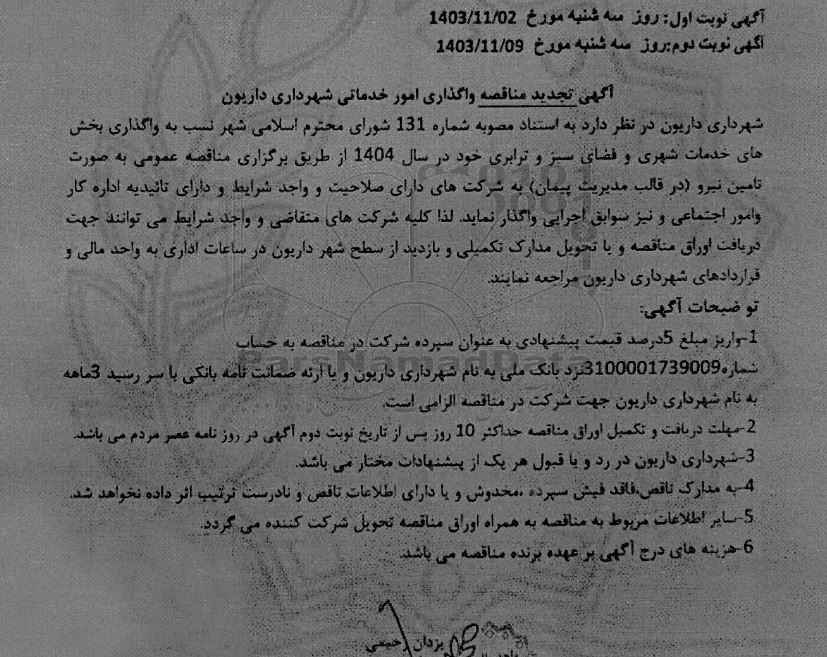 آگهی نوبت اول: روز سه شنبه مورخ 1403/11/02
آگهی نوبت دوم:روز سه شنبه مورخ 1403/11/09
آگهی تجدید مناقصه واگذاری امور خدماتی شهرداری داریون
شهرداری داریون در نظر دارد به استناد مصوبه شماره 131 شورای محترم اسلامی شهر نسب به واگذاری بخش
های خدمات شهری و فضای سبز و ترابری خود در سال 1404 از طریق برگزاری مناقصه عمومی به صورت
تامین نیرو (در قالب مدیریت پیمان) به شرکت های دارای صلاحیت و واجد شرایط و دارای تائیدیه اداره کار
وامور اجتماعی و نیز سوابق اجرایی واگذار نماید. لذا کلیه شرکت های متقاضی و واجد شرایط می توانند جهت
دریافت اوراق مناقصه و یا تحویل مدارک تکمیلی و بازدید از سطح شهر داریون در ساعات اداری به واحد مالی و
قراردادهای شهرداری داریون مراجعه نمایند.
تو ضیحات آگهی:
1-واریز مبلغ 5درصد قیمت پیشنهادی به عنوان سپرده شرکت در مناقصه به حساب
شماره3100001739009نزد بانک ملی به نام شهرداری داریون و یا ارئه ضمانت نامه بانکی با سر رسید 3ماهه
به نام شهرداری داریون جهت شرکت در مناقصه الزامی است.
2-مهلت دریافت و تکمیل اوراق مناقصه حداکثر 10 روز پس از تاریخ نوبت دوم آگهی در روز نامه عصر مردم می باشد.
3-شهرداری داریون در رد و یا قبول هر یک از پیشنهادات مختار می باشد.
4-به مدارک ناقص،فاقد فیش سپرده ،مخدوش و یا دارای اطلاعات ناقص و نادرست ترتیب اثر داده نخواهد شد.
5-سایر اطلاعات مربوط به مناقصه به همراه اوراق مناقصه تحویل شرکت کننده می گردد.
6-هزینه های درج آگهی بر عهده برنده مناقصه می باشد.
یزدان رحیمی
ParsNamadData